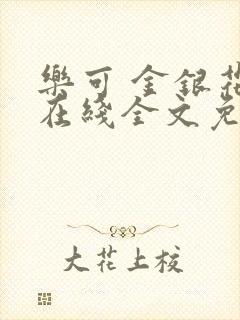 樂可 金銀花
在綫全文免
大花上校